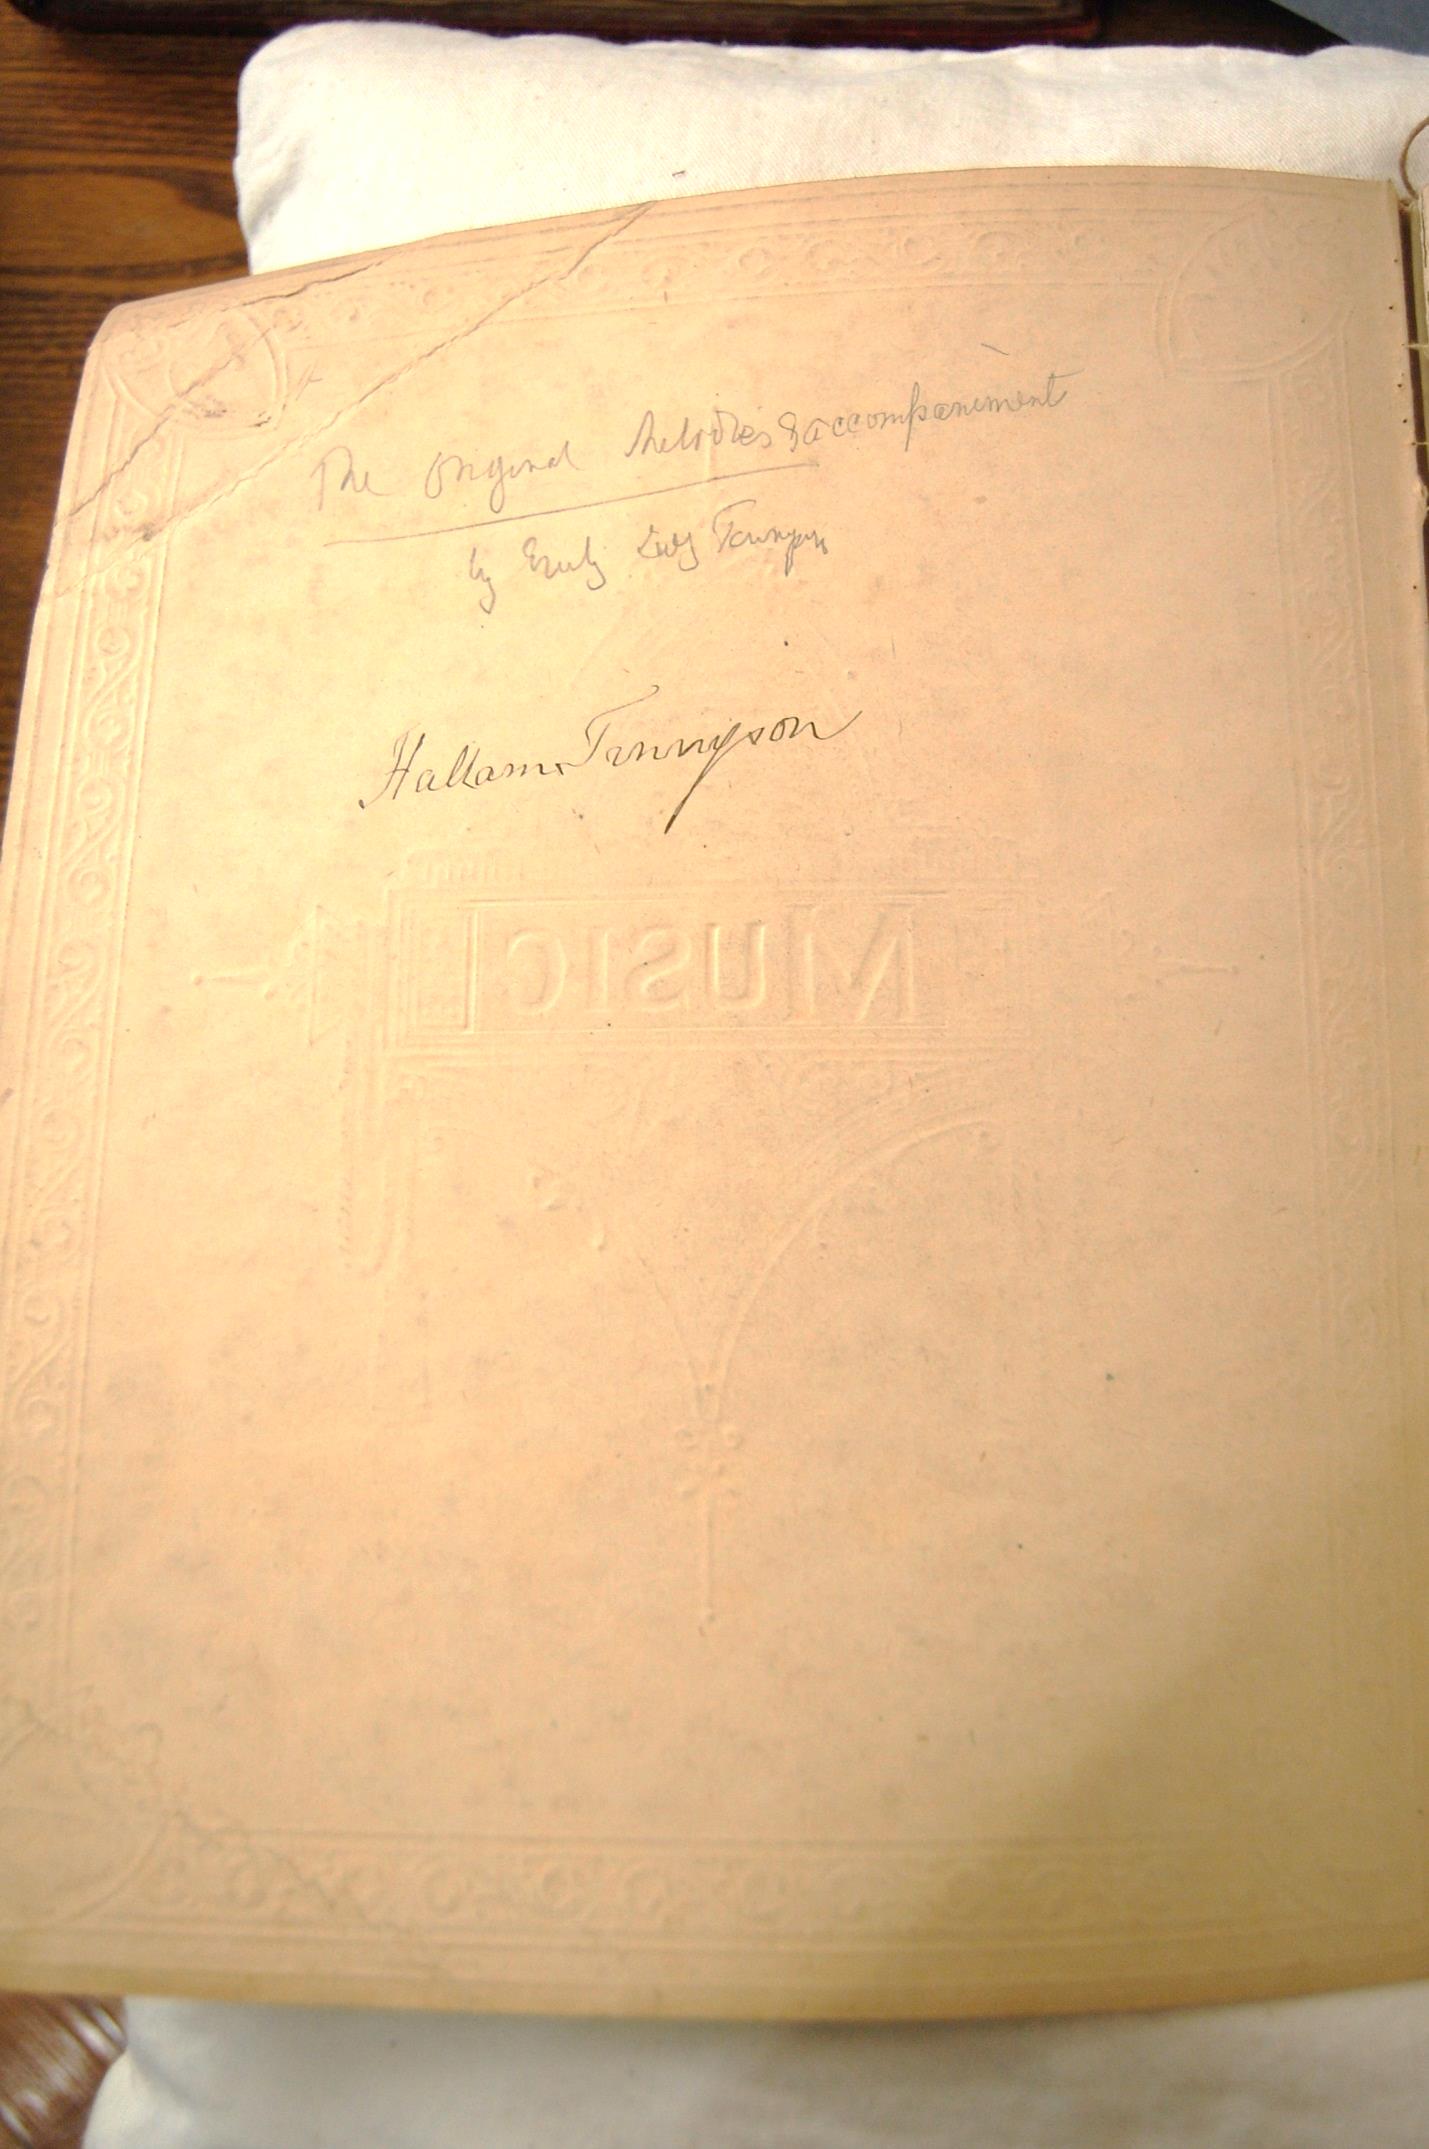 The Original Melodies & accompaniment
by Emily Lady Tennyson
Hallam Tennyson
MUSIC